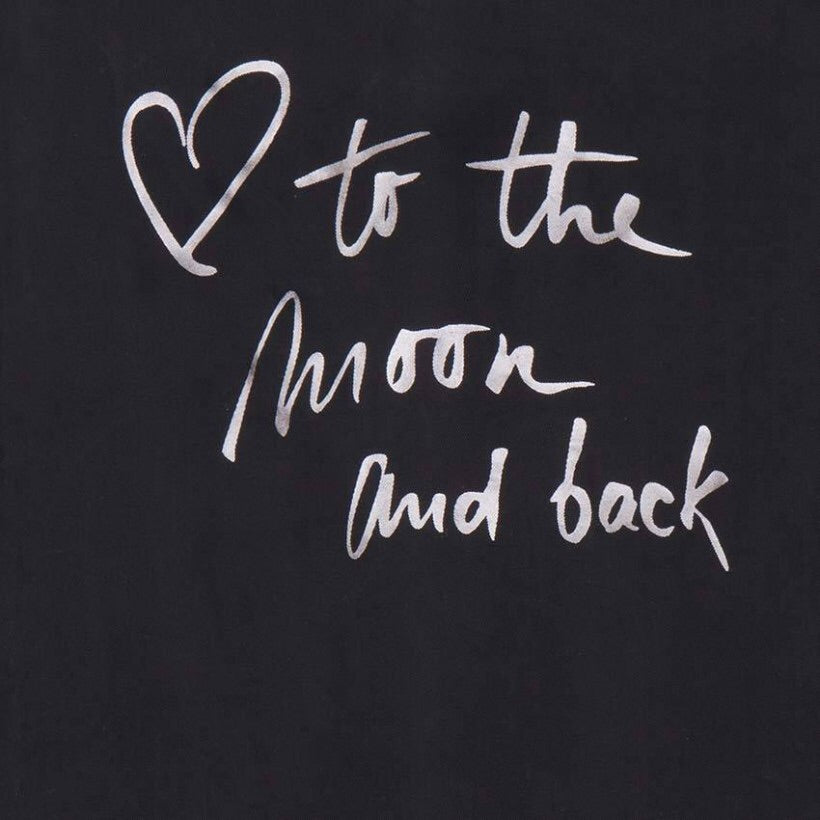 ♡ to the
Moon
and back